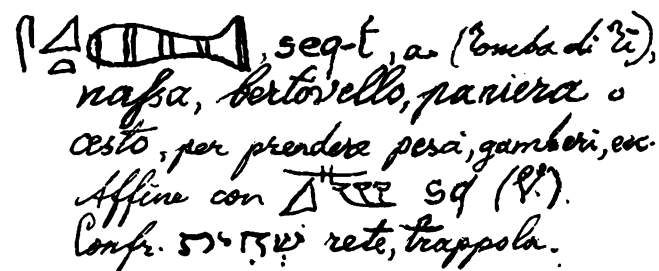 𓋴𓈎𓏏, seq-t, a. (Tomba di Ti),
naſsa, bertovello, paniera o
cesto, per prendere pesci, gamberi, ecc.
Affine con sq (V.).
Confr. rete, trappola.